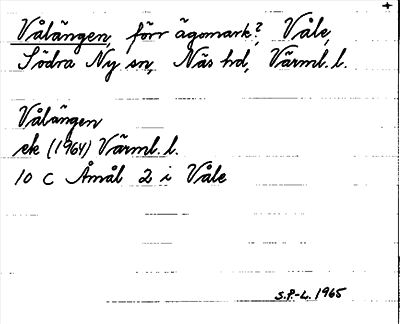 Vålängen, förr ägomark?, Våle,
Södra Ny sn, Näs hd, Värml. l.
Vålängen
ek (1964) Värml. l.
10 C Åmål 2 i Våle
S.P.-L. 1965